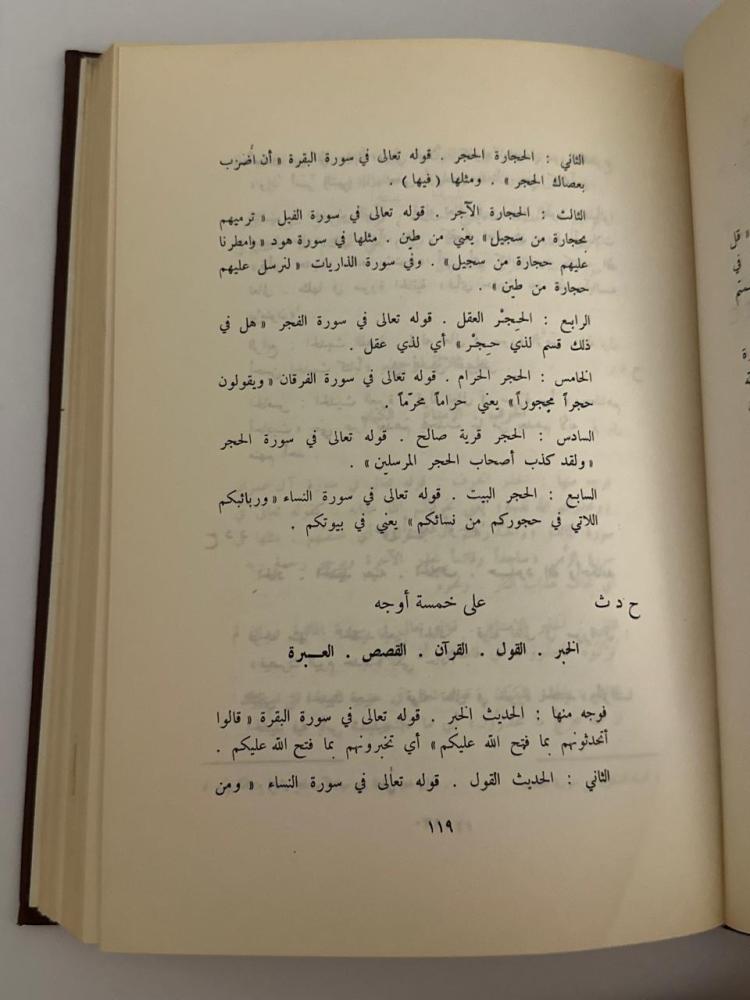 الثاني : الحجارة الحجر . قوله تعالى في سورة البقرة « أن أضرب
بعصاك الحجر » . ومثلها ( فيها ) .
الثالث : الحجارة الآجر . قوله تعالى في سورة الفيل « ترميهم
بحجارة من سجيل » يعني من طين . مثلها في سورة هود « وامطرنا
عليهم حجارة من سجيل » . وفي سورة الذاريات « لنرسل عليهم
حجارة من طين » .
الرابع : الحِجْر العقل . قوله تعالى في سورة الفجر « هل في
ذلك قسم لذي حِجْر » أي لذي عقل .
الخامس : الحجر الحرام . قوله تعالى في سورة الفرقان « ويقولون
حجراً محجوراً » يعني حراماً محرّماً .
السادس : الحجر قرية صالح . قوله تعالى في سورة الحجر
« ولقد كذب أصحاب الحجر المرسلين » .
السابع : الحجر البيت . قوله تعالى في سورة النساء « وربائبكم
اللاتي في حجوركم من نسائكم » يعني في بيوتكم .
ح د ث على خمسة أوجه
الخبر . القول . القرآن . القصص . العـبرة
فوجه منها : الحديث الخبر . قوله تعالى في سورة البقرة « قالوا
أتحدثونهم بما فتح الله عليكم » أي تخبرونهم بما فتح الله عليكم .
الثاني : الحديث القول . قوله تعالى في سورة النساء « ومن
١١٩
« قل
في